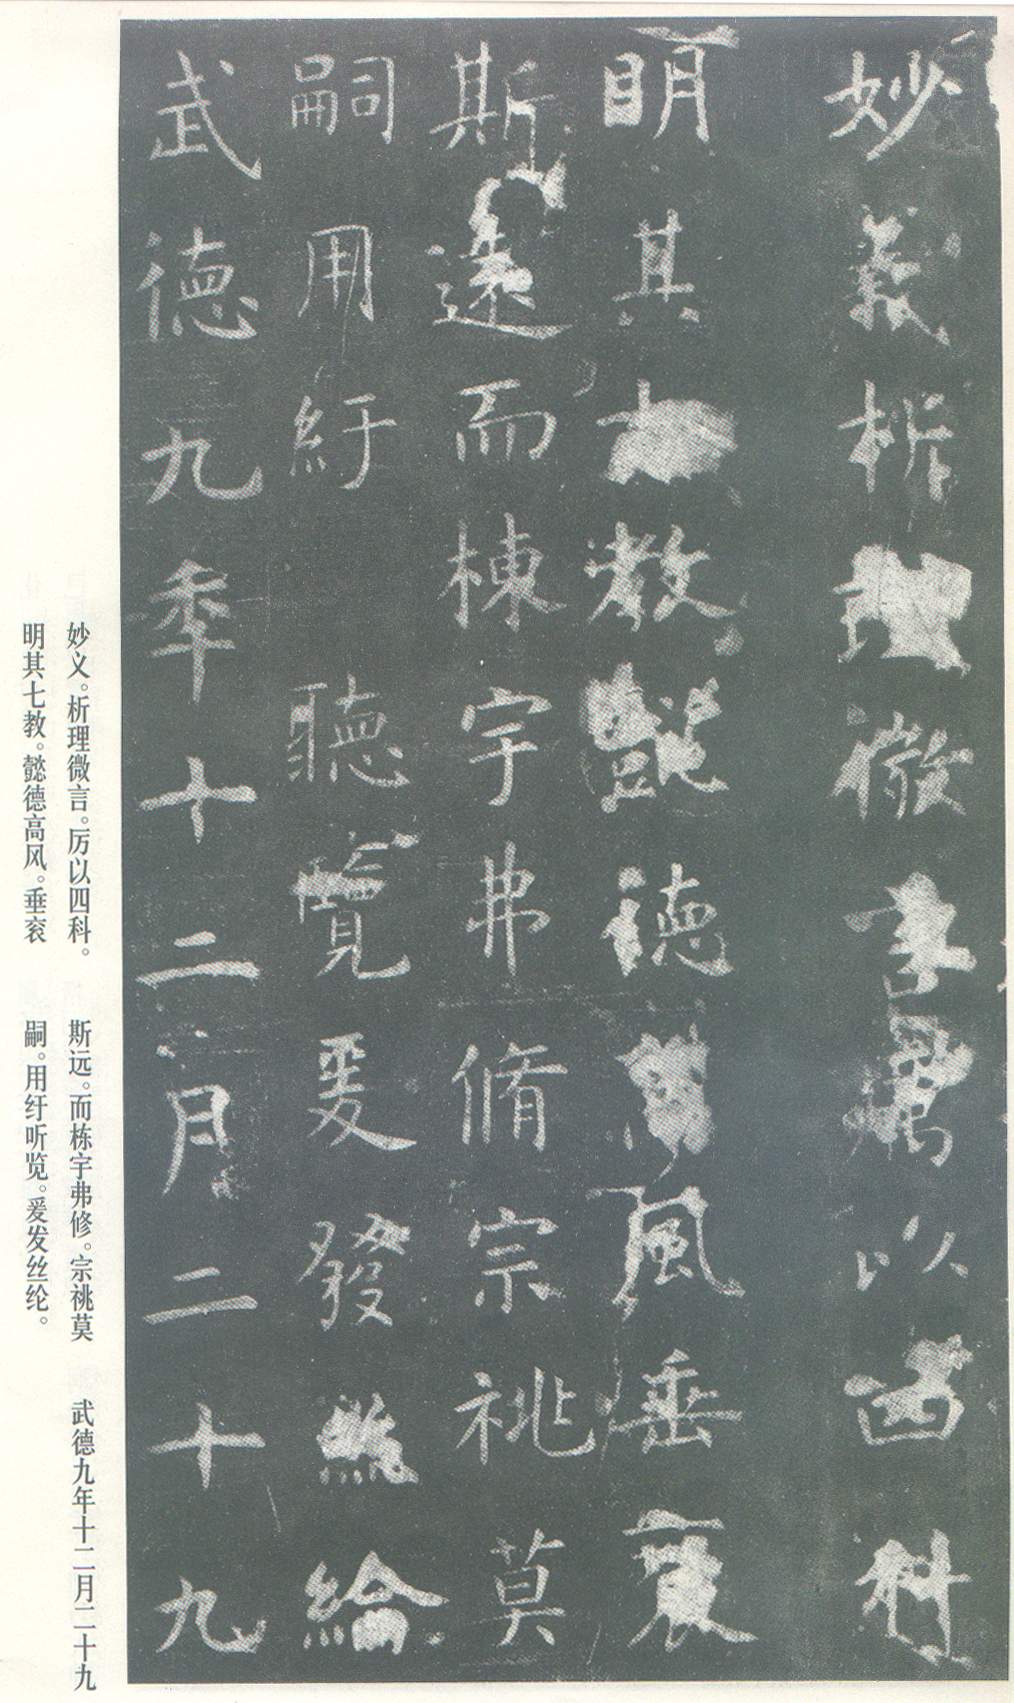 妙義析理微言厲以四科
明其七教懿德高風垂衮
斯遠而棟宇弗脩宗祧莫
嗣用紆聽覽爰發絲綸
武德九年十二月二十九
妙义。析理微言。厉以四科。
明其七教。懿德高风。垂衮
斯远。而栋宇弗修。宗祧莫
嗣。用纡听览。爰发丝纶。
武德九年十二月二十九